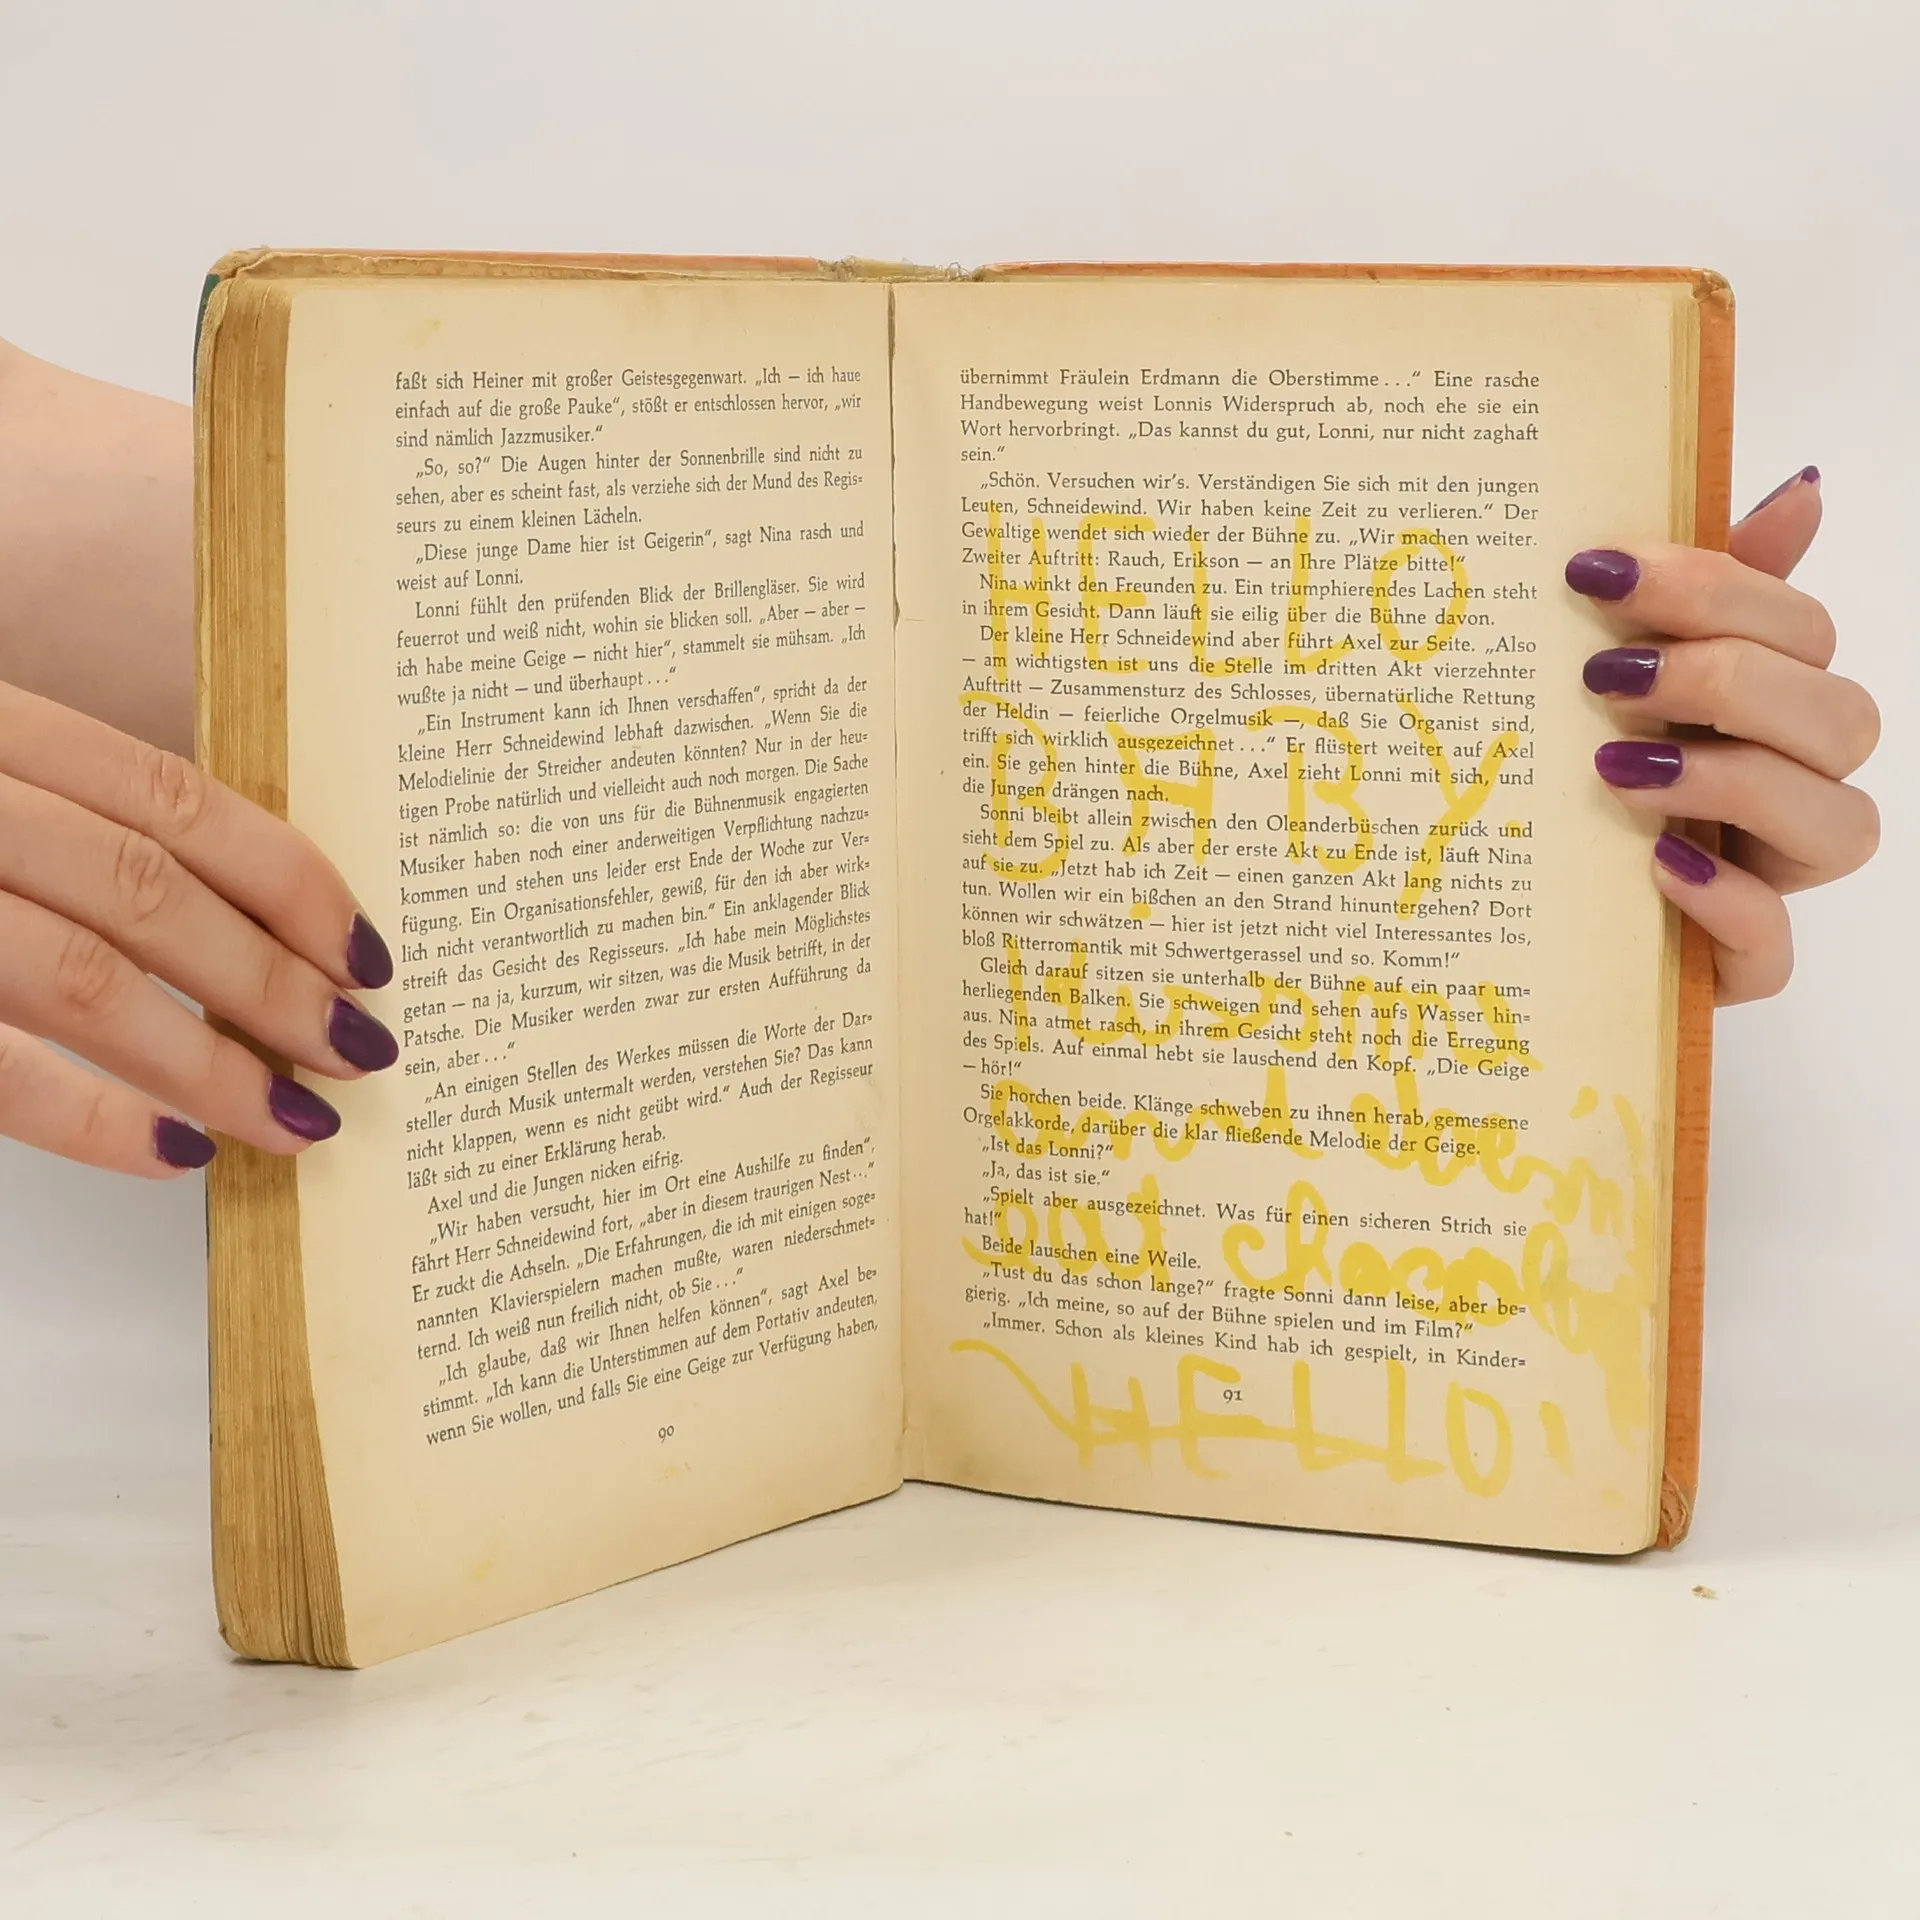 faßt sich Heiner mit großer Geistesgegenwart. „Ich — ich haue
einfach auf die große Pauke“, stößt er entschlossen hervor, „wir
sind nämlich Jazzmusiker.“
„So, so?“ Die Augen hinter der Sonnenbrille sind nicht zu
sehen, aber es scheint fast, als verziehe sich der Mund des Regis=
seurs zu einem kleinen Lächeln.
„Diese junge Dame hier ist Geigerin“, sagt Nina rasch und
weist auf Lonni.
Lonni fühlt den prüfenden Blick der Brillengläser. Sie wird
feuerrot und weiß nicht, wohin sie blicken soll. „Aber — aber —
ich habe meine Geige — nicht hier“, stammelt sie mühsam. „Ich
wußte ja nicht — und überhaupt . . .“
„Ein Instrument kann ich Ihnen verschaffen“, spricht da der
kleine Herr Schneidewind lebhaft dazwischen. „Wenn Sie die
Melodielinie der Streicher andeuten könnten? Nur in der heu=
tigen Probe natürlich und vielleicht auch noch morgen. Die Sache
ist nämlich so: die von uns für die Bühnenmusik engagierten
Musiker haben noch einer anderweitigen Verpflichtung nachzu=
kommen und stehen uns leider erst Ende der Woche zur Ver=
fügung. Ein Organisationsfehler, gewiß, für den ich aber wirk=
lich nicht verantwortlich zu machen bin.“ Ein anklagender Blick
streift das Gesicht des Regisseurs. „Ich habe mein Möglichstes
getan — na ja, kurzum, wir sitzen, was die Musik betrifft, in der
Patsche. Die Musiker werden zwar zur ersten Aufführung da
sein, aber . . .“
„An einigen Stellen des Werkes müssen die Worte der Dar=
steller durch Musik untermalt werden, verstehen Sie? Das kann
nicht klappen, wenn es nicht geübt wird.“ Auch der Regisseur
läßt sich zu einer Erklärung herab.
Axel und die Jungen nicken eifrig.
„Wir haben versucht, hier im Ort eine Aushilfe zu finden“,
fährt Herr Schneidewind fort, „aber in diesem traurigen Nest . . .“
Er zuckt die Achseln. „Die Erfahrungen, die ich mit einigen soge=
nannten Klavierspielern machen mußte, waren niederschmet=
ternd. Ich weiß nun freilich nicht, ob Sie . . .“
„Ich glaube, daß wir Ihnen helfen können“, sagt Axel be=
stimmt. „Ich kann die Unterstimmen auf dem Portativ andeuten,
wenn Sie wollen, und falls Sie eine Geige zur Verfügung haben,
90
übernimmt Fräulein Erdmann die Oberstimme . . .“ Eine rasche
Handbewegung weist Lonnis Widerspruch ab, noch ehe sie ein
Wort hervorbringt. „Das kannst du gut, Lonni, nur nicht zaghaft
sein.“
„Schön. Versuchen wir's. Verständigen Sie sich mit den jungen
Leuten, Schneidewind. Wir haben keine Zeit zu verlieren.“ Der
Gewaltige wendet sich wieder der Bühne zu. „Wir machen weiter.
Zweiter Auftritt: Rauch, Erikson — an Ihre Plätze bitte!“
Nina winkt den Freunden zu. Ein triumphierendes Lachen steht
in ihrem Gesicht. Dann läuft sie eilig über die Bühne davon.
Der kleine Herr Schneidewind aber führt Axel zur Seite. „Also
— am wichtigsten ist uns die Stelle im dritten Akt vierzehnter
Auftritt — Zusammensturz des Schlosses, übernatürliche Rettung
der Heldin — feierliche Orgelmusik —, daß Sie Organist sind,
trifft sich wirklich ausgezeichnet . . .“ Er flüstert weiter auf Axel
ein. Sie gehen hinter die Bühne, Axel zieht Lonni mit sich, und
die Jungen drängen nach.
Sonni bleibt allein zwischen den Oleanderbüschen zurück und
sieht dem Spiel zu. Als aber der erste Akt zu Ende ist, läuft Nina
auf sie zu. „Jetzt hab ich Zeit — einen ganzen Akt lang nichts zu
tun. Wollen wir ein bißchen an den Strand hinuntergehen? Dort
können wir schwätzen — hier ist jetzt nicht viel Interessantes los,
bloß Ritterromantik mit Schwertgerassel und so. Komm!“
Gleich darauf sitzen sie unterhalb der Bühne auf ein paar um=
herliegenden Balken. Sie schweigen und sehen aufs Wasser hin=
aus. Nina atmet rasch, in ihrem Gesicht steht noch die Erregung
des Spiels. Auf einmal hebt sie lauschend den Kopf. „Die Geige
— hör!“
Sie horchen beide. Klänge schweben zu ihnen herab, gemessene
Orgelakkorde, darüber die klar fließende Melodie der Geige.
„Ist das Lonni?“
„Ja, das ist sie.“
„Spielt aber ausgezeichnet. Was für einen sicheren Strich sie
hat!“
Beide lauschen eine Weile.
„Tust du das schon lange?“ fragte Sonni dann leise, aber be=
gierig. „Ich meine, so auf der Bühne spielen und im Film?“
„Immer. Schon als kleines Kind hab ich gespielt, in Kinder=
91
HELLO
BABY
HELLO!